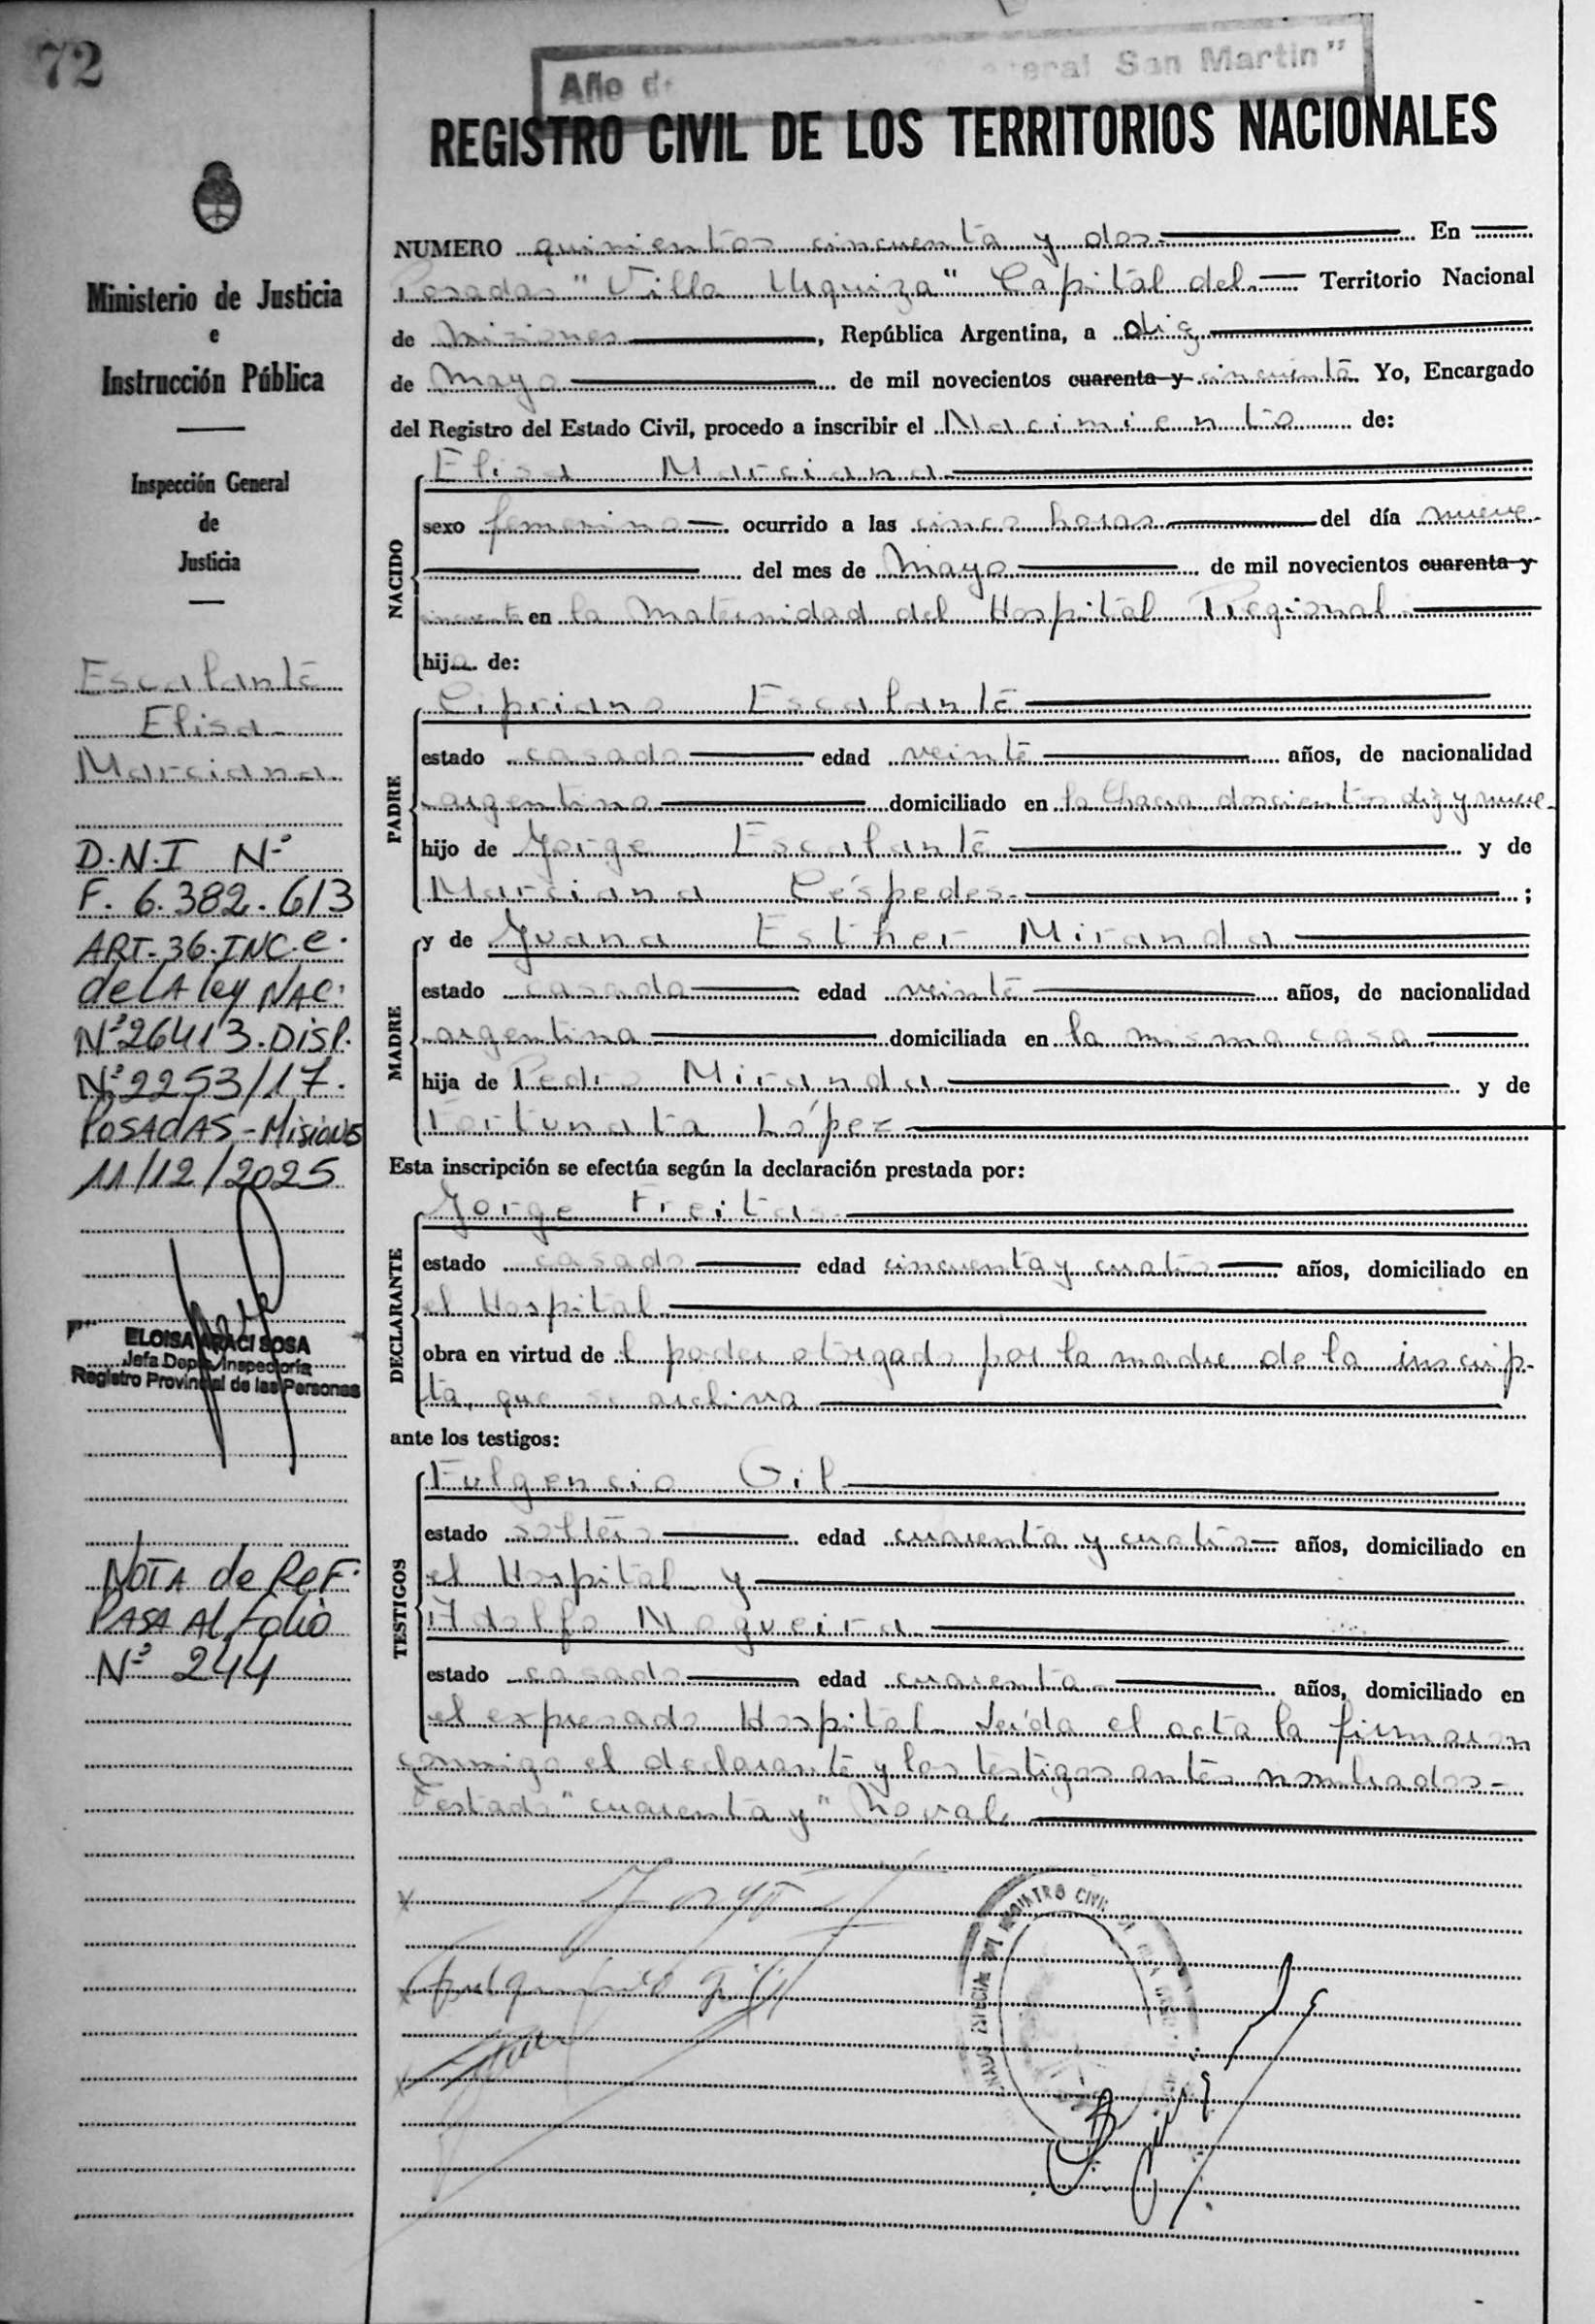 72
Año d
eral San Martin"
REGISTRO CIVIL DE LOS TERRITORIOS NACIONALES
Ministerio de Justicia
e
Instrucción Pública
Inspección General
de
Justicia
Escalante
Elisa
Marciana
D.N.I Nº
F. 6.382.613
ART. 36. INC. e.
de LA ley NAC.
Nº 26413. DISP.
Nº 2253/17.
POSADAS - Misiones
11/12/2025
ELOISA ARACI SOSA
Jefa Depto. Inspectoría
Registro Provincial de las Personas
NOTA de ReF.
PASA Al folio
Nº 244
NUMERO quinientos cincuenta y dos En
Posadas "Villa Urquiza" Capital del Territorio Nacional
de Misiones, República Argentina, a diez
de Mayo de mil novecientos cuarenta y cincuenta Yo, Encargado
del Registro del Estado Civil, procedo a inscribir el Nacimiento de:
NACIDO
Elisa Marciana
sexo femenino ocurrido a las cinco horas del día nueve
del mes de Mayo de mil novecientos cuarenta y
cincuenta en la Maternidad del Hospital Regional
hija de:
PADRE
Cipriano Escalante
estado casado edad veinte años, de nacionalidad
argentina domiciliado en la Chacra doscientos diez y nueve
hijo de Jorge Escalante y de
Marciana Céspedes ;
MADRE
y de Juana Esther Miranda
estado casada edad veinte años, de nacionalidad
argentina domiciliada en la misma casa
hija de Pedro Miranda y de
Fortunata López
Esta inscripción se efectúa según la declaración prestada por:
DECLARANTE
Jorge Freitas
estado casado edad cincuenta y cuatro años, domiciliado en
el Hospital
obra en virtud de l poder otorgado por la madre de la inscrip-
ta, que se archiva
ante los testigos:
TESTIGOS
Fulgencio Gil
estado soltero edad cuarenta y cuatro años, domiciliado en
el Hospital y
Adolfo Nogueira
estado casado edad cuarenta años, domiciliado en
el expresado Hospital. Leída el acta la firmaron
conmigo el declarante y los testigos antes nombrados-
Testado "cuarenta y" No vale
Fulgencio Gil
REGISTRO CIVIL